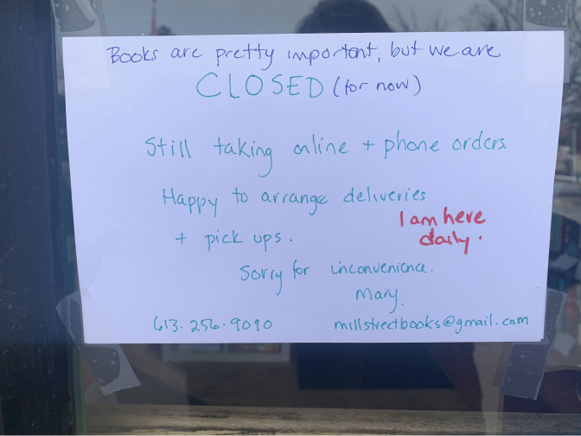 Books are pretty important, but we are
CLOSED (for now)
Still taking online + phone orders.
Happy to arrange deliveries
+ pick ups.
I am here
daily.
Sorry for inconvenience.
Mary.
613.256.9090
millstreetbooks@gmail.com